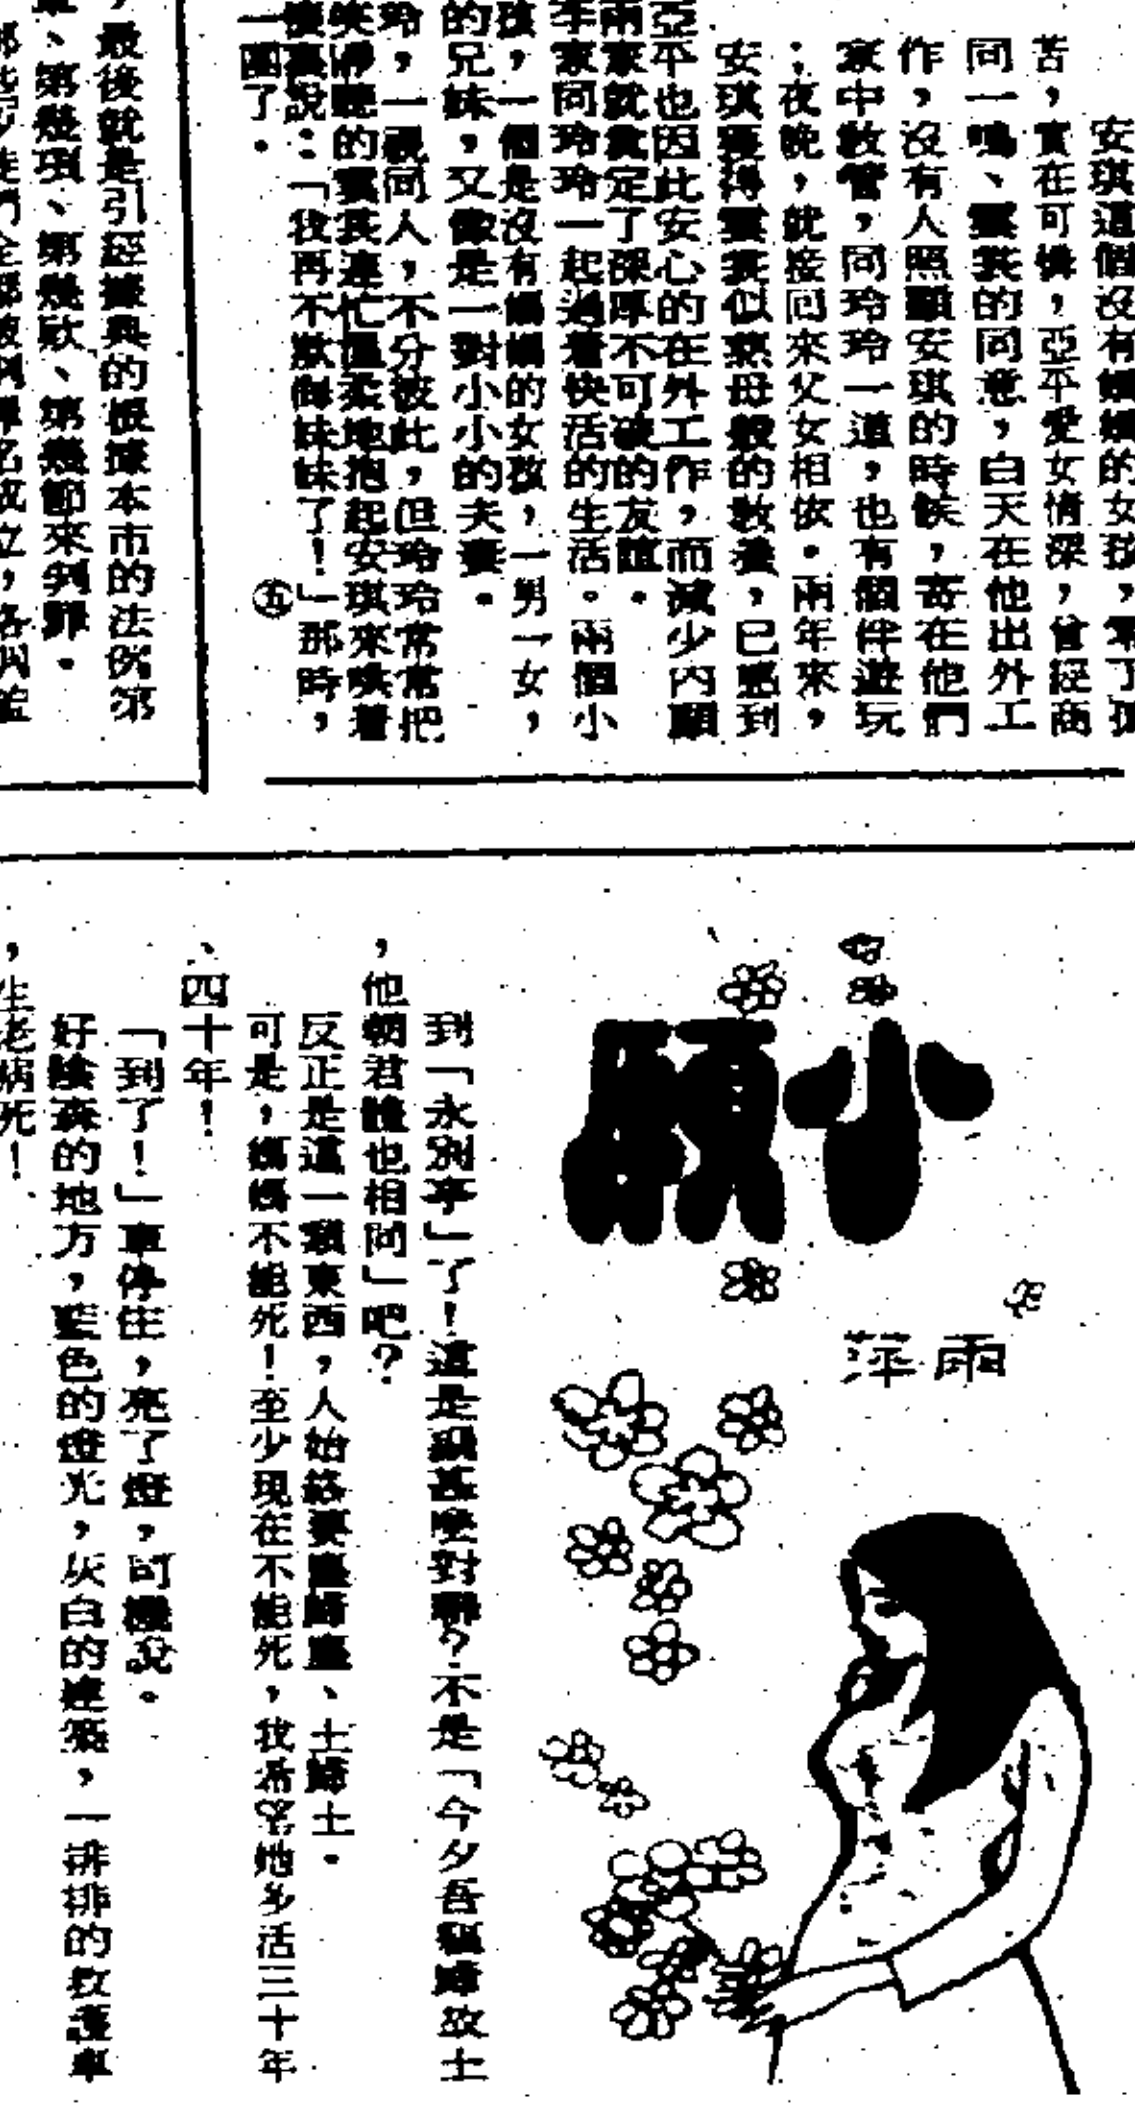 安琪這個沒有媽媽的女孩，零丁孤
苦，實在可憐，亞平愛女情深，曾經商
同一鳴、雲裳的同意，白天在他出外工
作，沒有人照顧安琪的時候，寄在他們
家中教管，同玲玲一道，也有個伴遊玩
；夜晚，就接回來父女相依。兩年來，
安琪獲得雲裳似慈母般的教養，已感到
亞平也因此安心的在外工作，而減少內顧
兩家就奠定了深厚不可破的友誼。
李家同玲玲一起過着快活的生活。兩個小
孩，一個是沒有媽媽的女孩，一男一女，
的兄妹，又像是一對小小的夫妻。
玲，一視同人，不分彼此，但玲玲常常把
的雲裳連忙溫柔地抱起安琪來哄着
說：「我再不欺侮妹妹了！」那時，
一團了。
㊄
，最後就是引經據典的根據本市的法例第
、第幾項、第幾款、第幾節來判罪。
小願
雨萍
到「永別亭」了！這是副甚麼對聯？不是「今夕吾軀歸故土
，他朝君體也相同」吧？
反正是這一類東西，人始終要塵歸塵、土歸土。
可是，媽媽不能死！至少現在不能死，我希望她多活三十年
、四十年！
「到了！」車停住，亮了燈，司機說。
好陰森的地方，藍色的燈光，灰白的建築，一排排的救護車
，生老病死！